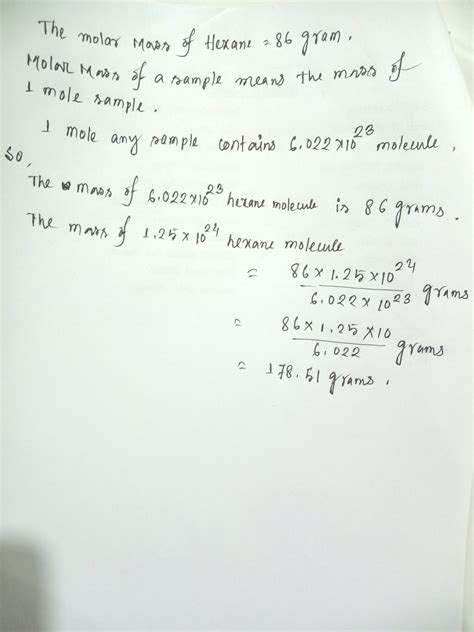 The molar Mass of Hexane = 86 gram.
Molar Mass of a sample means the mass of
1 mole sample.
1 mole any sample contains 6.022×10²³ molecule.
So,
The mass of 6.022×10²³ hexane molecule is 86 grams.
The mass of 1.25 × 10²⁴ hexane molecule
= 86 × 1.25 × 10²⁴ / 6.022 × 10²³ grams
= 86 × 1.25 × 10 / 6.022 grams
= 178.51 grams.